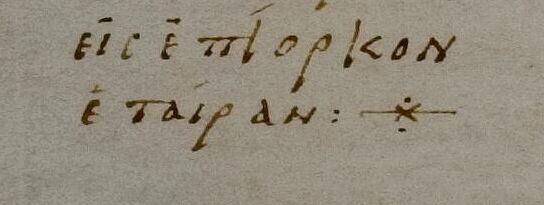 εἰς ἐπίορκον
ἑταίραν: —※—